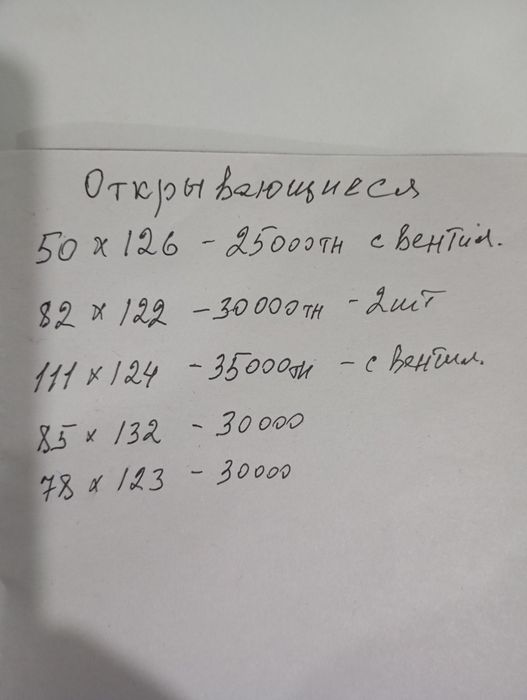 Открывающиеся
50 х 126 - 25000тн с вентил.
82 х 122 - 30000тн - 2шт
111 х 124 - 35000тн - с вентил.
85 х 132 - 30000
78 х 123 - 30000